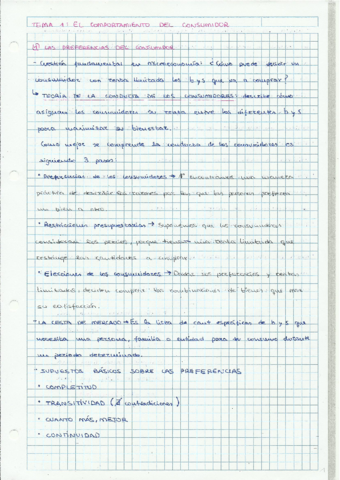 TEMA 1: EL COMPORTAMIENTO DEL CONSUMIDOR
LAS PREFERENCIAS DEL CONSUMIDOR
- Cuestión fundamental en microeconomía: ¿Cómo puede decidir un
consumidor con renta limitada los b y s que va a comprar?
↳ TEORÍA DE LA CONDUCTA DE LOS CONSUMIDORES: describe cómo
asignan los consumidores su renta entre los diferentes b y s
para maximizar su bienestar.
Como mejor se comprende la conducta de los consumidores es
siguiendo 3 pasos
• Preferencias de los consumidores → 1º encontramos una manera
práctica de describir las razones por las que las personas prefieren
un bien a otro.
• Restricciones presupuestarias → Suponemos que los consumidores
consideran los precios, porque tienen una renta limitada que
restringe las cantidades a comprar.
• Elecciones de los consumidores → Dadas las preferencias y rentas
limitadas, deciden comprar las combinaciones de bienes que max
su satisfacción.
- LA CESTA DE MERCADO → Es la lista de cant específicas de b y s que
necesita una persona, familia o entidad para su consumo durante
un periodo determinado.
- SUPUESTOS BÁSICOS SOBRE LAS PREFERENCIAS
• COMPLETITUD
• TRANSITIVIDAD (∄ contradicciones)
• CUANTO MÁS, MEJOR
• CONTINUIDAD